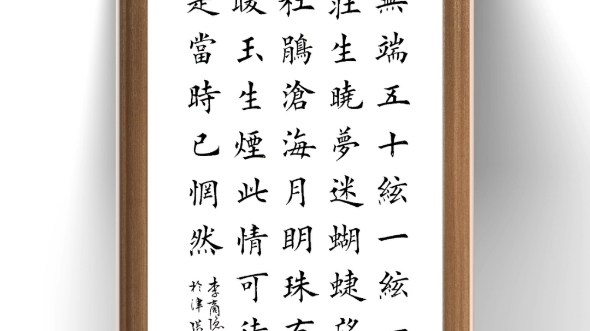 無端五十絃一絃一
莊生曉夢迷蝴蜨望
杜鵑滄海月眀珠有
暖玉生煙此情可待
是當時已惘然
李商隱
於津